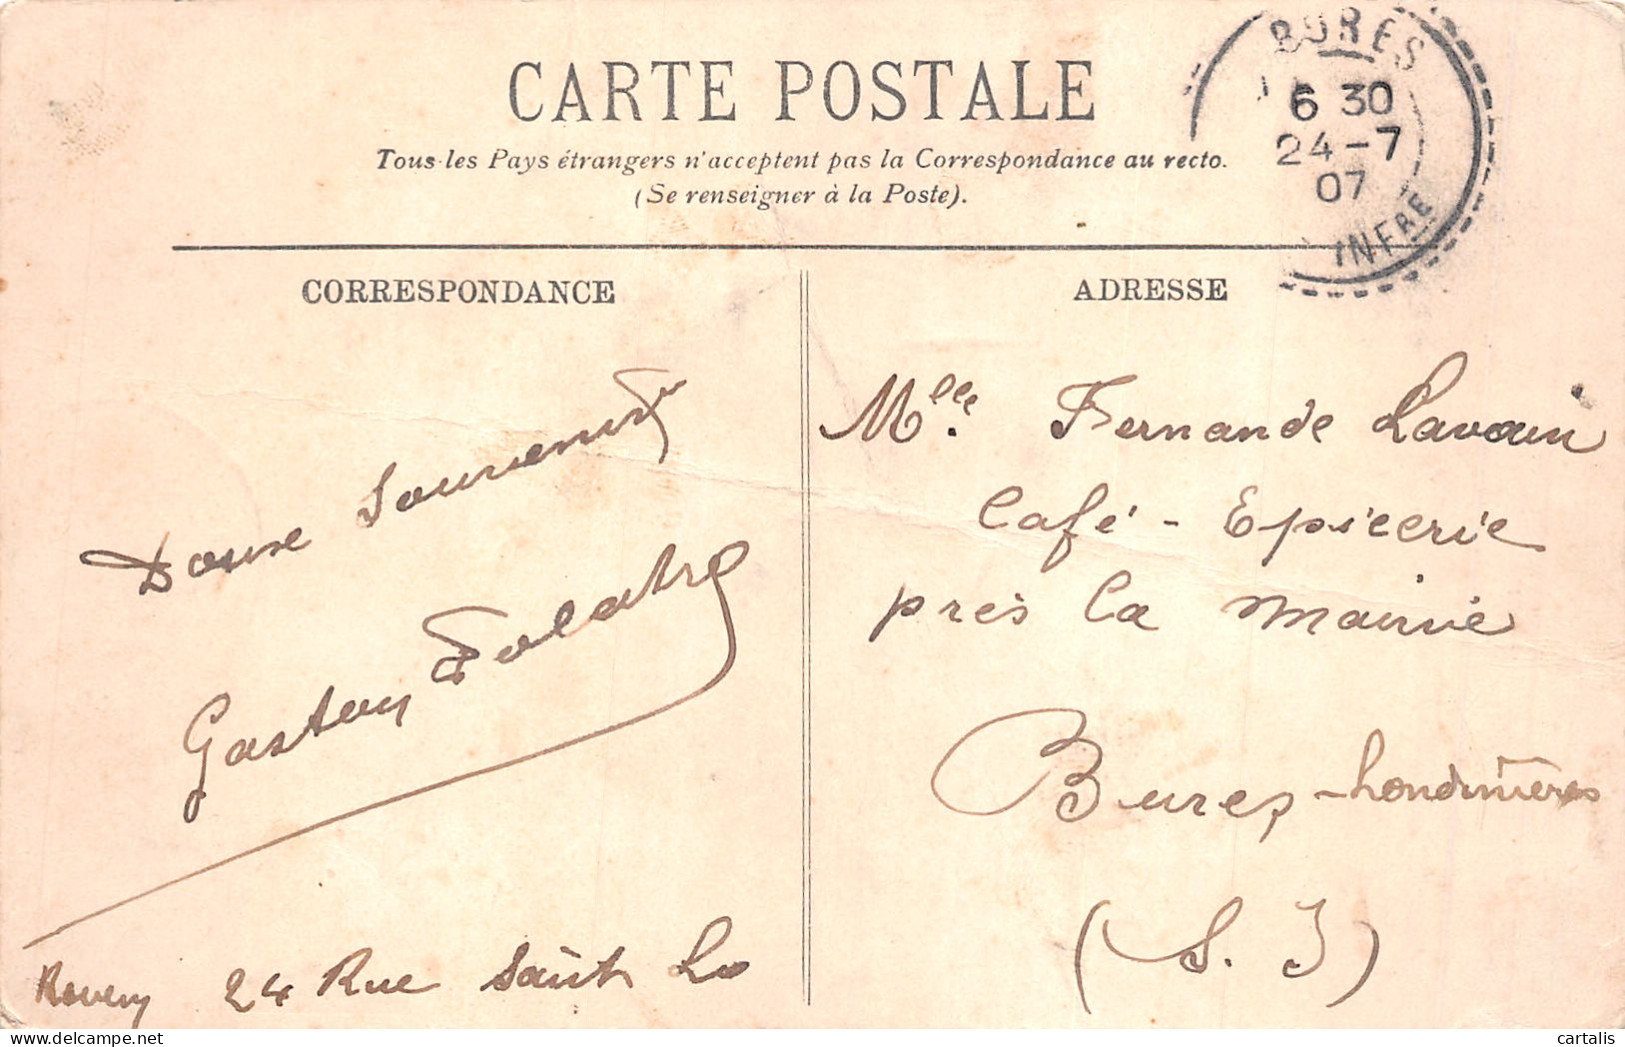 CARTE POSTALE
Tous les Pays étrangers n'acceptent pas la Correspondance au recto.
(Se renseigner à la Poste).
BURES
6 30
24-7
07
INFRE
CORRESPONDANCE
ADRESSE
Doux Souvenir
Gaston
Rouen 24 Rue Saint Lo
Mlle. Fernande Lavoin
Café - Epicerie
près la Mairie
Bures-Londinières
(S. I)
cartalis